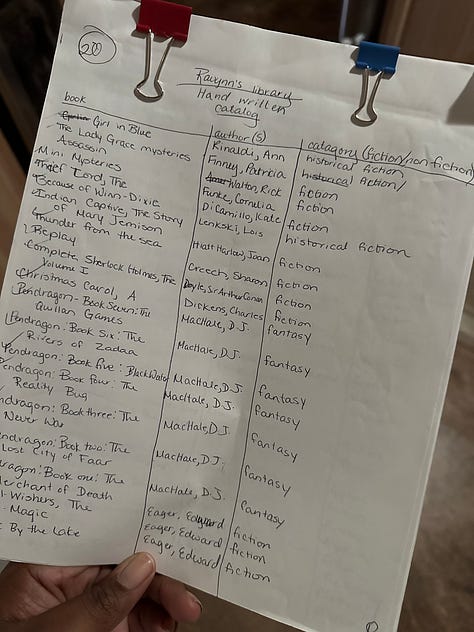 20
Ravynn's library
Hand written
catalog
book author(s) catagory (fiction/non-fiction)
Girl in Blue Rinaldi, Ann historical fiction
The Lady Grace mysteries Finney, Patricia historical fiction/
Assassin
Mini Mysteries Walton, Rick fiction
Thief Lord, The Funke, Cornelia fiction
Because of Winn-Dixie DiCamillo, Kate fiction
Indian Captive, The Story Lenkski, Lois historical fiction
of Mary Jemison
Thunder from the sea Hiatt Harlow, Joan fiction
Replay Creech, Sharon fiction
Complete Sherlock Holmes, The Doyle, Sir Arthur Conan fiction
Volume I
Christmas Carol, A Dickens, Charles fiction
Pendragon-Book Seven: The MacHale, D.J. fantasy
Quillan Games
Pendragon: Book Six: The MacHale, D.J. fantasy
Rivers of Zadaa
Pendragon: Book five: BlackWater MacHale, D.J. fantasy
Pendragon: Book four: The MacHale, D.J. fantasy
Reality Bug
ndragon: Book three: The MacHale, D.J. fantasy
Never War
ndragon: Book two: The MacHale, D.J. fantasy
Lost City of Faar
ragon: Book one: The MacHale, D.J. fantasy
erchant of Death
l-Wishers, The Eager, Edward fiction
Magic Eager, Edward fiction
By the Lake Eager, Edward fiction